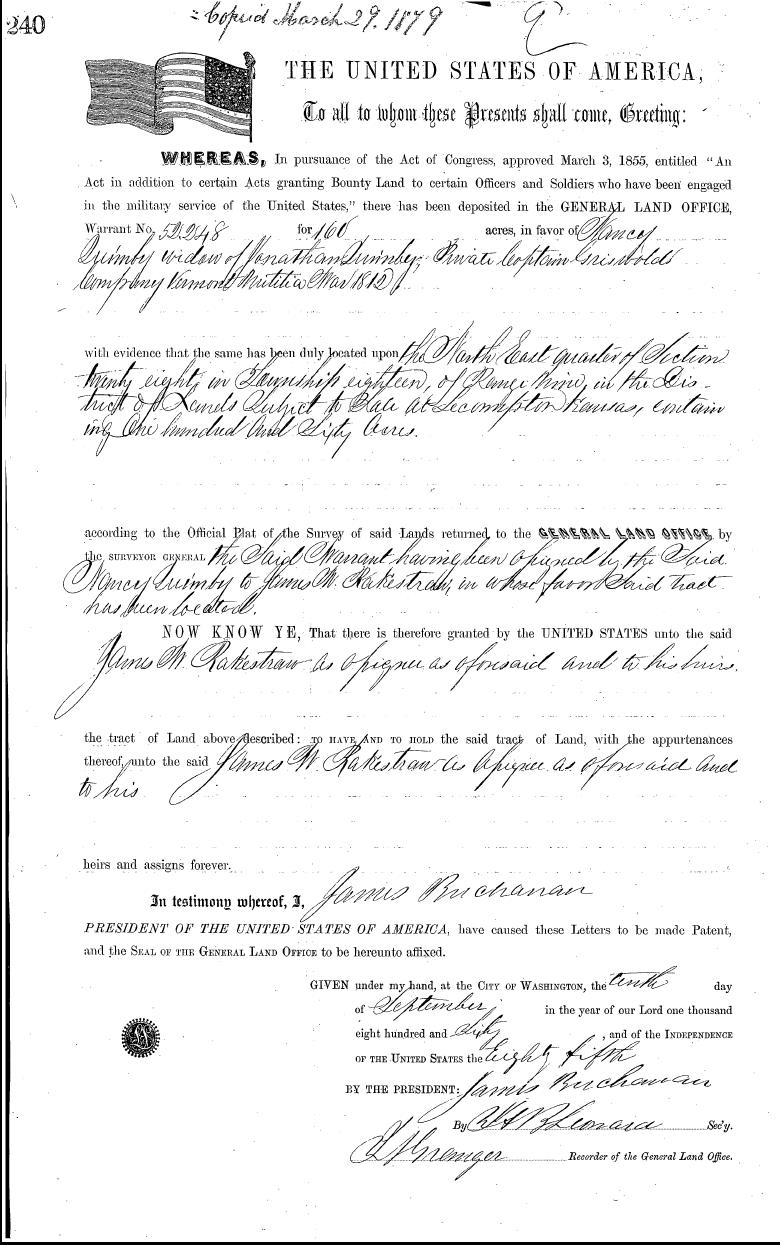 240
= Copied March 29. 1879
THE UNITED STATES OF AMERICA,
To all to whom these Presents shall come, Greeting:
WHEREAS, In pursuance of the Act of Congress, approved March 3, 1855, entitled "An
Act in addition to certain Acts granting Bounty Land to certain Officers and Soldiers who have been engaged
in the military service of the United States," there has been deposited in the GENERAL LAND OFFICE,
Warrant No. 52248 for 160 acres, in favor of Nancy
Quimby widow of Jonathan Quimby, Private Captain Griswold's
Company Vermont Militia War 1812
with evidence that the same has been duly located upon the North East quarter of Section
twenty eight, in Township eighteen, of Range Nine, in the Dis-
trict of Lands Subject to Sale at Lecompton Kansas, contain
ing One hundred and Sixty Acres.
according to the Official Plat of the Survey of said Lands returned to the GENERAL LAND OFFICE by
the SURVEYOR GENERAL the Said Warrant having been assigned by the Said
Nancy Quimby to James W. Rakestraw, in whose favor Said tract
has been located.
NOW KNOW YE, That there is therefore granted by the UNITED STATES unto the said
James W. Rakestraw as assignee as aforesaid and to his heirs.
the tract of Land above described: TO HAVE AND TO HOLD the said tract of Land, with the appurtenances
thereof, unto the said James W. Rakestraw as assignee as aforesaid and
to his
heirs and assigns forever.
In testimony whereof, I, James Buchanan
PRESIDENT OF THE UNITED STATES OF AMERICA, have caused these Letters to be made Patent,
and the SEAL OF THE GENERAL LAND OFFICE to be hereunto affixed.
GIVEN under my hand, at the CITY OF WASHINGTON, the tenth day
of September, in the year of our Lord one thousand
eight hundred and Sixty, and of the INDEPENDENCE
OF THE UNITED STATES the Eighty fifth
BY THE PRESIDENT: James Buchanan
By Leonard Sec'y.
Granger Recorder of the General Land Office.